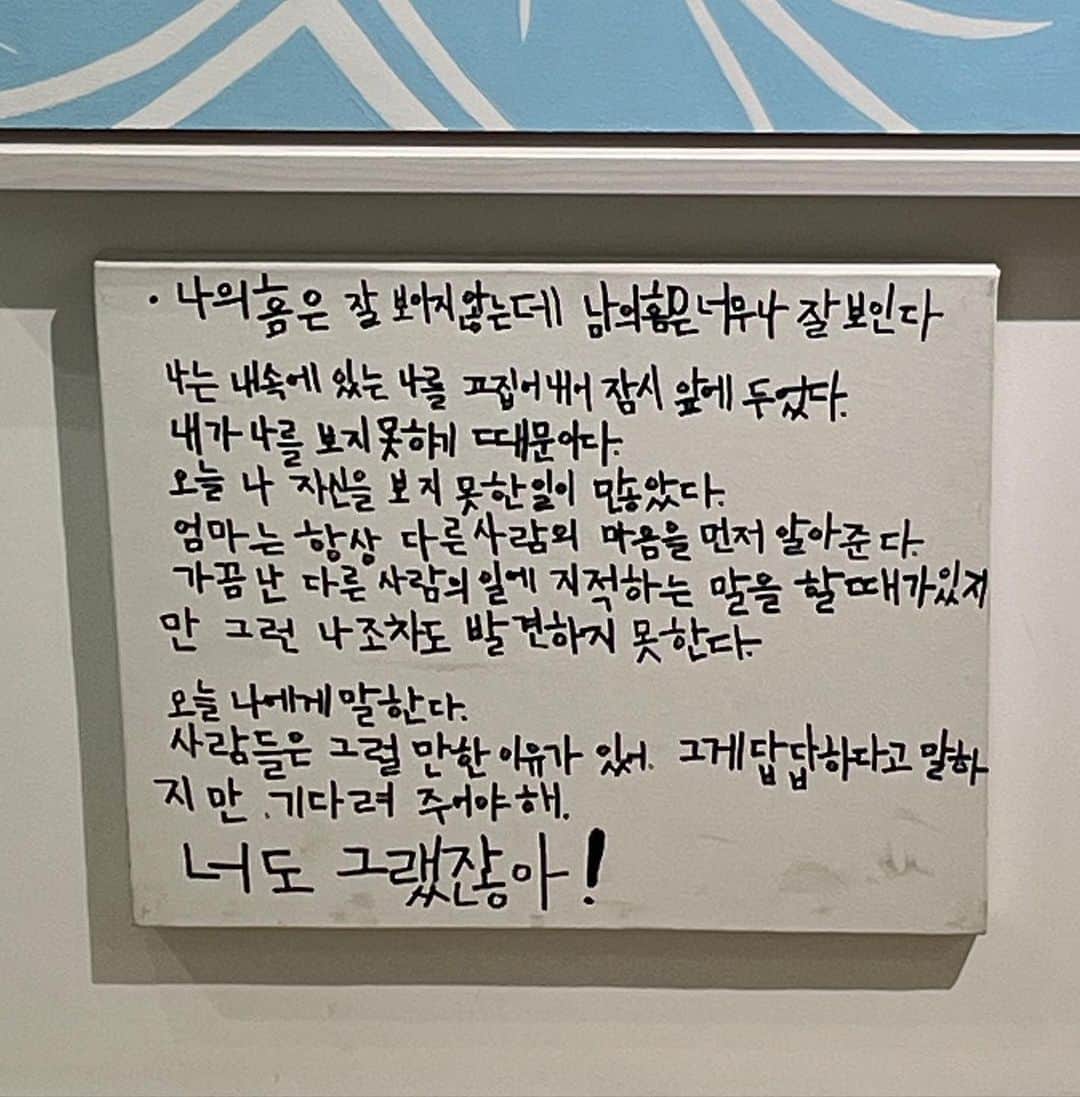 · 나의 흠은 잘 보아지 않는데 남의 흠은 너무나 잘 보인다
나는 내속에 있는 나를 끄집어 내어 잠시 앞에 두었다.
내가 나를 보지 못하기 때문이다.
오늘 나 자신을 보지 못한 일이 많았다.
엄마는 항상 다른 사람의 마음을 먼저 알아준다.
가끔 난 다른 사람의 일에 지적하는 말을 할 때가 있지
만 그런 나조차도 발견하지 못한다.
오늘 나에게 말한다.
사람들은 그럴 만한 이유가 있어. 그게 답답하다고 말하
지만 . 기다려 주어야 해.
너도 그랬잖아!